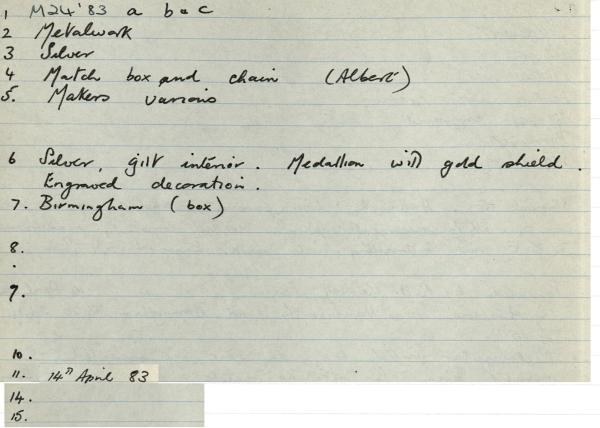 1 M24'83 a b & c
2 Metalwork
3 Silver
4 Match box and chain (Albert)
5. Makers various
6 Silver, gilt interior. Medallion with gold shield.
Engraved decoration.
7. Birmingham (box)
8.
.
9.
10.
11. 14th April 83
14.
15.